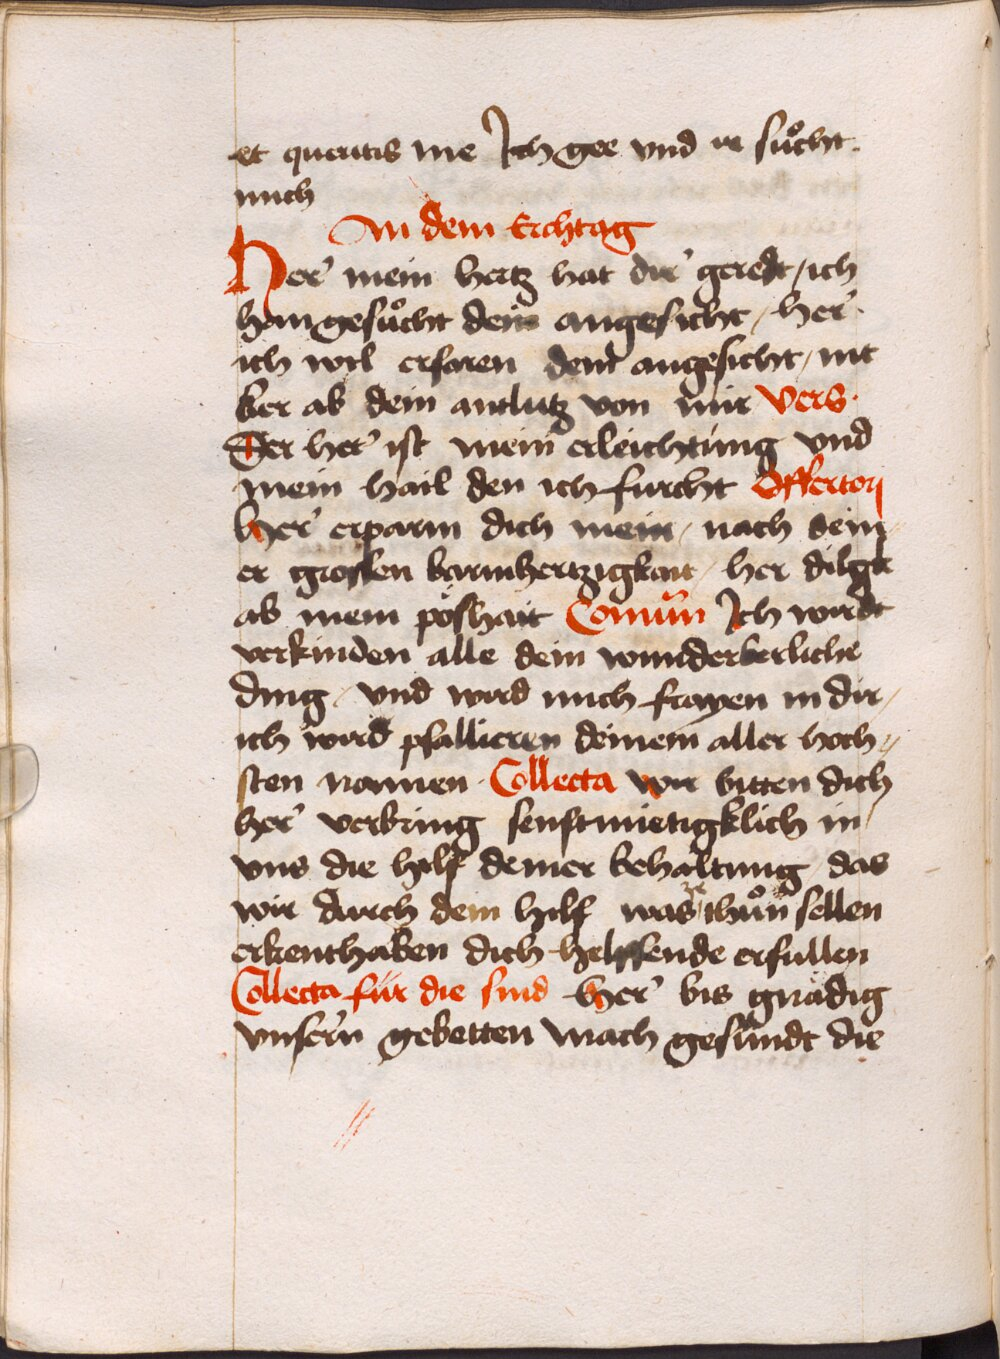 et queritis me Ich gee vnd ir suͦcht
mich
An dem Erchtag
Her' mein hertz hat dir geredt / ich
han gesuͦcht dein angesicht / her'
ich wil erfaren dein angesicht / nit
ker ab dein antlutz von mir Vers
Der her' ist mein erleichtung vnd
mein hail den ich furcht Offertorj
her' erparm dich mein / nach dein
er grossen barmhertzigkait / her dilgk
ab mein pöshait Comun̄ Ich wirdt
verkinden alle dein wunderberliche
ding / vnd wird mich frayen in dir /
ich wird psallieren deinem aller hoch
sten nammen Collecta wir bitten dich
her' verbring senftmietigklich in
vns die hilf deiner behaltung / das
wir durch dein hilf was ze thuͦn sellen
erkenthaben dich helffende erfullen
Collecta für die sind her' bis gnädig
vnsern gebetten mach gesundt die